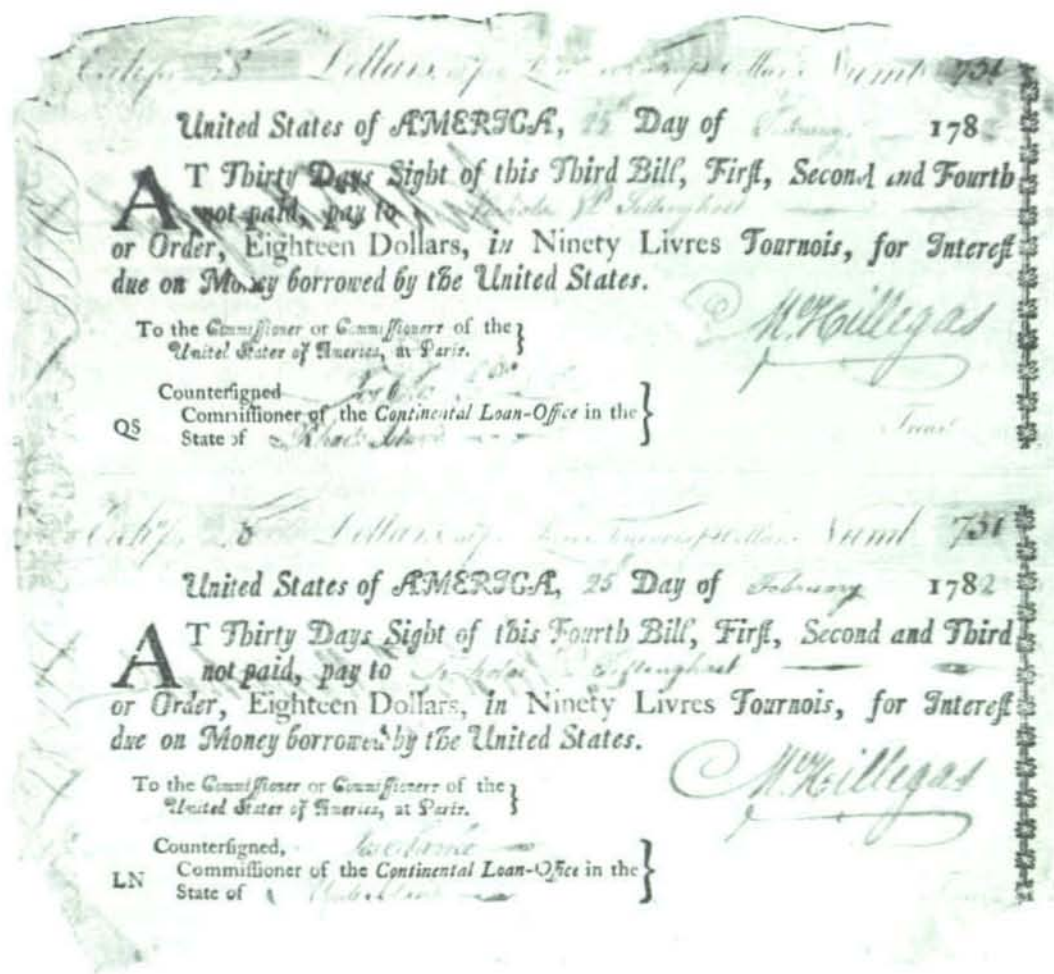 Dollars Numb 731
United States of AMERICA, 25 Day of February 178
AT Thirty Days Sight of this Third Bill, First, Second and Fourth
not paid, pay to Tillinghast
or Order, Eighteen Dollars, in Ninety Livres Tournois, for Interest
due on Money borrowed by the United States.
To the Commissioner or Commissioners of the
United States of America, at Paris.
M. Hillegas
Countersigned
Commissioner of the Continental Loan-Office in the
QS State of Rhode Island
Treasr
Dollars Numb 731
United States of AMERICA, 25 Day of February 1782
AT Thirty Days Sight of this Fourth Bill, First, Second and Third
not paid, pay to Nicholas Tillinghast
or Order, Eighteen Dollars, in Ninety Livres Tournois, for Interest
due on Money borrowed by the United States.
To the Commissioner or Commissioners of the
United States of America, at Paris.
M. Hillegas
Countersigned,
Commissioner of the Continental Loan-Office in the
LN State of